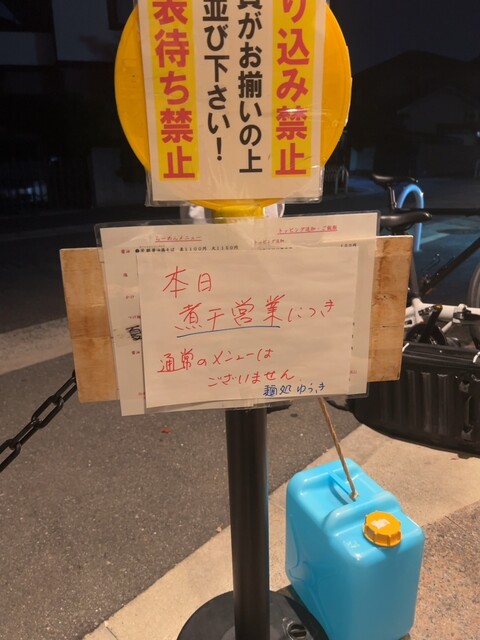 り込み禁止
員がお揃いの上
並び下さい！
表待ち禁止
らーめんメニュー
本日
煮干営業につき
通常のメニューは
ございません
麺処 ゆうき